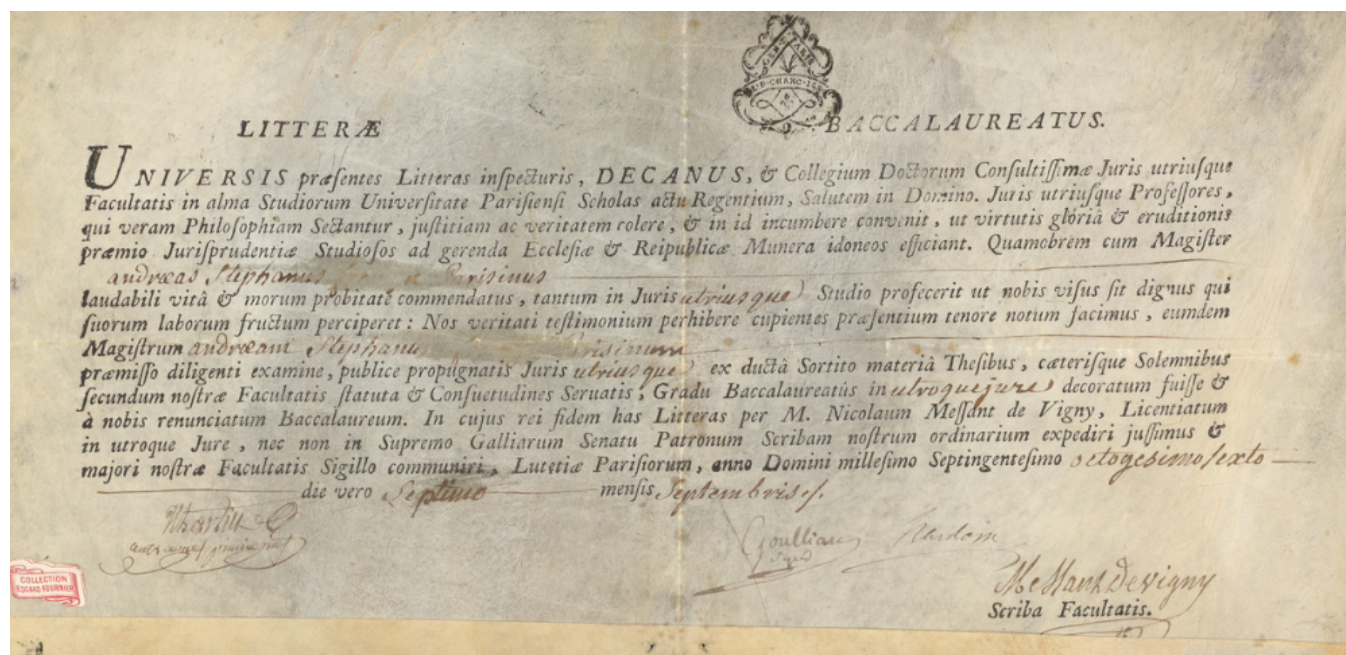 LITTERÆ BACCALAUREATUS.
UNIVERSIS præſentes Litteras inſpecturis, DECANUS, & Collegium Doctorum Conſultiſſimæ Juris utriuſque
Facultatis in alma Studiorum Univerſitate Pariſienſi Scholas actu Regentium, Salutem in Domino. Juris utriuſque Profeſſores,
qui veram Philoſophiam Sectantur, juſtitiam ac veritatem colere, & in id incumbere convenit, ut virtutis gloriâ & eruditionis
præmio Juriſprudentiæ Studioſos ad gerenda Eccleſiæ & Reipublicæ Munera idoneos efficiant. Quamobrem cum Magiſter
andreas Stephanus Parisinus
laudabili vitâ & morum probitate commendatus, tantum in Juris utriusque Studio profecerit ut nobis viſus ſit dignus qui
ſuorum laborum fructum perciperet: Nos veritati teſtimonium perhibere cupientes præſentium tenore notum facimus, eumdem
Magiſtrum andream Stephanum Parisinum
præmiſſo diligenti examine, publice propugnatis Juris utriusque ex ductâ Sortito materiâ Theſibus, cæteriſque Solemnibus
ſecundum noſtræ Facultatis ſtatuta & Conſuetudines Servatis, Gradu Baccalaureatûs in utroque jure decoratum fuiſſe &
à nobis renunciatum Baccalaureum. In cujus rei fidem has Litteras per M. Nicolaum Meſſant de Vigny, Licentiatum
in utroque Jure, nec non in Supremo Galliarum Senatu Patronum Scribam noſtrum ordinarium expediri juſſimus &
majori noſtræ Facultatis Sigillo communiri, Lutetiæ Pariſiorum, anno Domini milleſimo Septingenteſimo octogesimo sexto
die vero Septimo menſis Septembris
Goulliart Hardoin
Messant De vigny
Scriba Facultatis.
COLLECTION
EDOUARD FOURNIER